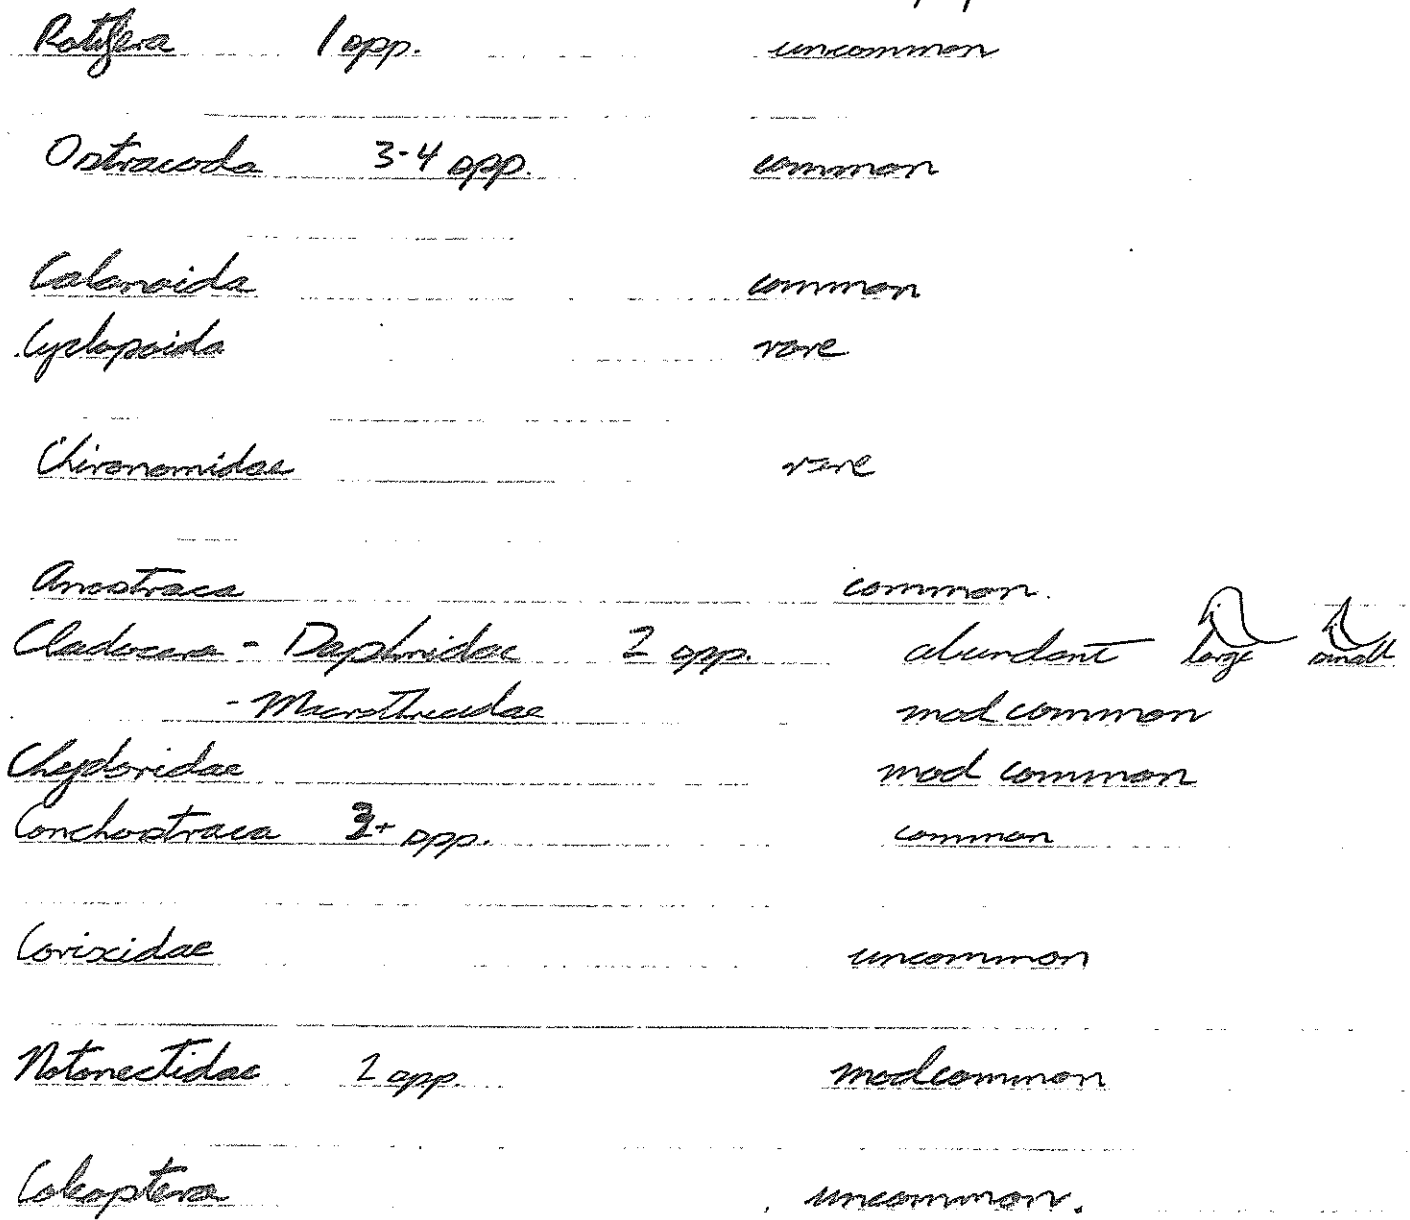 Rotifera 1 spp. uncommon
Ostracoda 3-4 spp. common
Calanoida common
Cyclopoida rare
Chironomidae rare
Anostraca common.
Cladocera - Daphnidae 2 spp. abundant large small
- Macrothricidae mod common
Chydoridae mod common
Conchostraca 3+ spp. common
Corixidae uncommon
Notonectidae 2 spp. modcommon
Coleoptera uncommon.